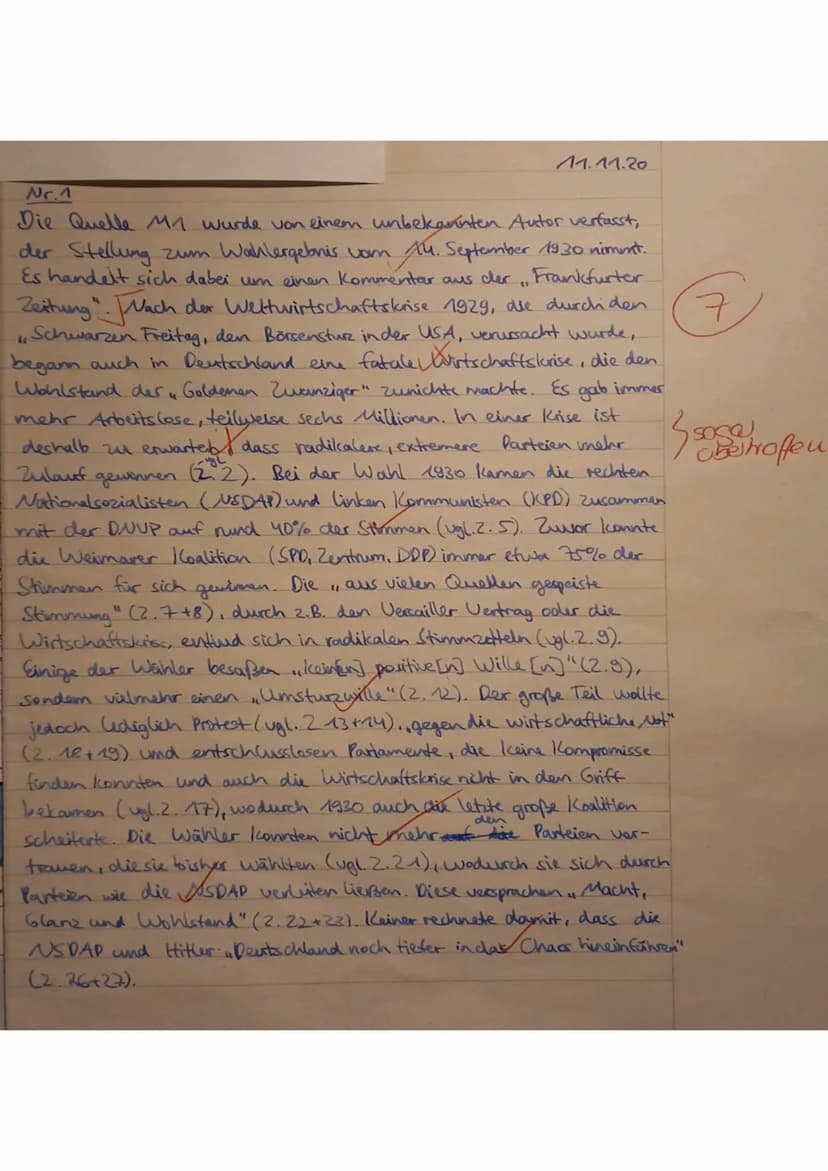 11.11.20
Nr.1
Die Quelle M1 wurde von einem unbekannten Autor verfasst,
der Stellung zum Wahlergebnis vom 14. September 1930 nimmt.
Es handelt sich dabei um einen Kommentar aus der „Frankfurter
Zeitung". Nach der Weltwirtschaftskrise 1929, die durch den
7
„Schwarzen Freitag, den Börsensturz in der USA, verursacht wurde,
begann auch in Deutschland eine fatale Wirtschaftskrise, die den
Wohlstand der „Goldenen Zwanziger" zunichte machte. Es gab immer
mehr Arbeitslose, teilweise sechs Millionen. In einer Krise ist
deshalb zu erwarten, dass radikalere, extremere Parteien mehr
sogar
übertroffen
Zulauf gewinnen (vgl. Z. 2). Bei der Wahl 1930 kamen die rechten
Nationalsozialisten (NSDAP) und linken Kommunisten (KPD) zusammen
mit der DNVP auf rund 40% der Stimmen (vgl. Z. 5). Zuvor konnte
die Weimarer Koalition (SPD, Zentrum, DDP) immer etwa 75% der
Stimmen für sich gewinnen. Die „aus vielen Quellen gespeiste
Stimmung" (Z. 7+8), durch z.B. den Versailler Vertrag oder die
Wirtschaftskrise, entlud sich in radikalen Stimmzetteln (vgl. Z. 9).
Einige der Wähler besaßen „kein[en] positive[n] Wille[n]" (Z. 9),
sondern vielmehr einen „Umsturzwille" (Z. 12). Der große Teil wollte
jedoch lediglich Protest (vgl. Z 13+14) „gegen die wirtschaftliche Not"
(Z. 18+19) und entschlusslosen Parlamente, die keine Kompromisse
finden konnten und auch die Wirtschaftskrise nicht in den Griff
bekamen (vgl. Z. 17), wodurch 1930 auch die letzte große Koalition
scheiterte. Die Wähler konnten nicht mehr auf die den Parteien ver-
trauen, die sie bisher wählten (vgl Z. 21), wodurch sie sich durch
Parteien wie die NSDAP verleiten ließen. Diese versprachen „Macht,
Glanz und Wohlstand" (Z. 22+23). Keiner rechnete damit, dass die
NSDAP und Hitler „Deutschland noch tiefer in das Chaos hineinführen"
(Z. 26+27).